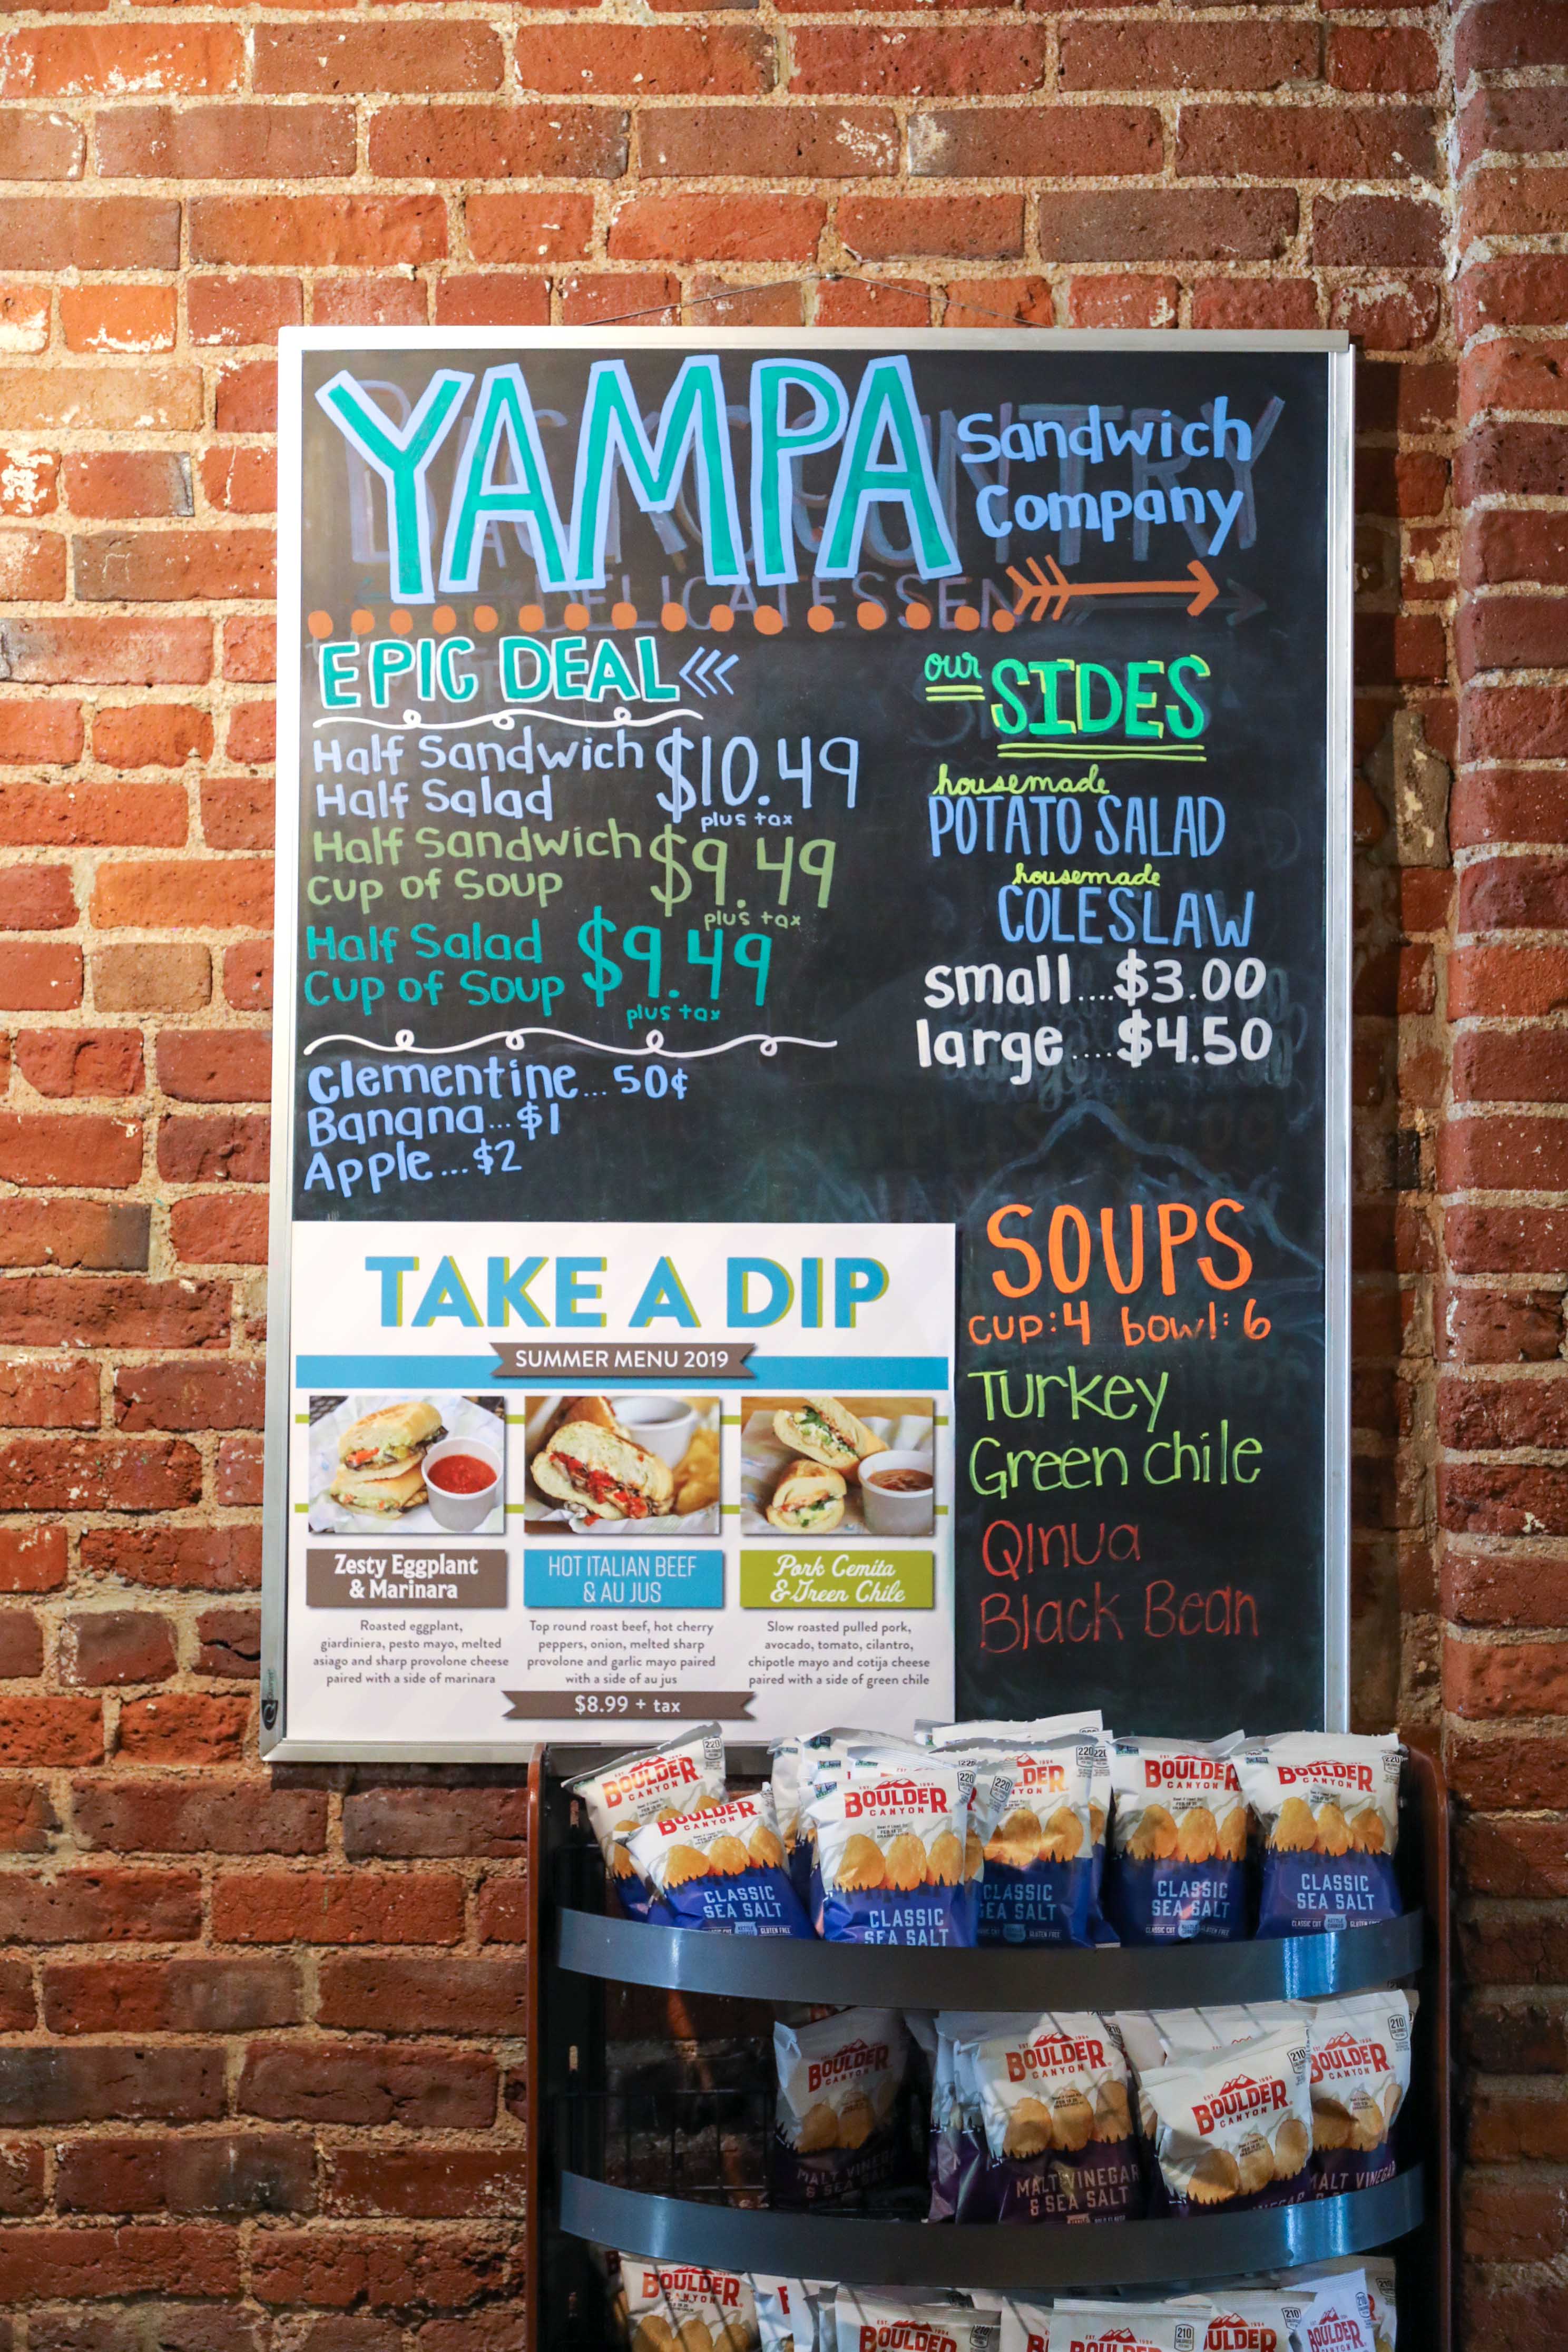 YAMPA Sandwich
Company
DELICATESSEN
EPIC DEAL
Half Sandwich
Half Salad
$10.49
plus tax
Half Sandwich
Cup of Soup
$9.49
plus tax
Half Salad
Cup of Soup
$9.49
plus tax
Clementine... 50¢
Banana... $1
Apple... $2
our SIDES
housemade
POTATO SALAD
housemade
COLESLAW
small....$3.00
large....$4.50
SOUPS
cup:4 bowl:6
Turkey
Green chile
Qinua
Black Bean
TAKE A DIP
SUMMER MENU 2019
Zesty Eggplant
& Marinara
Roasted eggplant,
giardiniera, pesto mayo, melted
asiago and sharp provolone cheese
paired with a side of marinara
HOT ITALIAN BEEF
& AU JUS
Top round roast beef, hot cherry
peppers, onion, melted sharp
provolone and garlic mayo paired
with a side of au jus
Pork Cemita
& Green Chile
Slow roasted pulled pork,
avocado, tomato, cilantro,
chipotle mayo and cotija cheese
paired with a side of green chile
$8.99 + tax
BOULDER
CANYON
220
BOULDER
CANYON
CLASSIC
SEA SALT
GLUTEN FREE
BOULDER
CANYON
220
CLASSIC
SEA SALT
220
CLASSIC
SEA SALT
GLUTEN FREE
BOULDER
CANYON
CLASSIC
SEA SALT
BOULDER
CANYON
220
CLASSIC
SEA SALT
BOULDER
CANYON
MALT VINEGAR
& SEA SALT
BOULDER
CANYON
MALT VINEGAR
& SEA SALT
BOULDER
CANYON
210
BOULDER
CANYON
210
MALT VINEGAR
BOULDER
CANYON
BOULDER
210
BOULDER
210
BOULDER